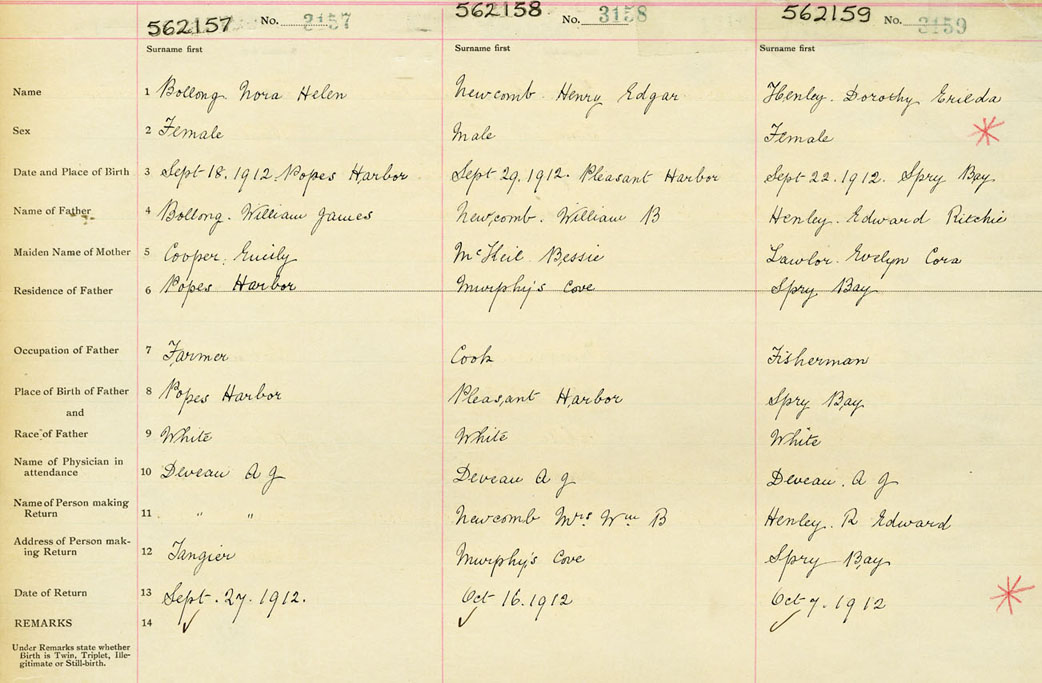 562157 No. 3157 562158 No. 3158 562159 No. 3159
Surname first Surname first Surname first
Name 1 Bollong Nora Helen Newcomb Henry Edgar Henley. Dorothy Erilda
Sex 2 Female Male Female
Date and Place of Birth 3 Sept 18. 1912 Popes Harbor Sept 29. 1912. Pleasant Harbor Sept 22. 1912. Spry Bay
Name of Father 4 Bollong. William James Newcomb. William B Henley. Edward Ritchie
Maiden Name of Mother 5 Cooper. Emily McHeil Bessie Lawlor. Evelyn Cora
Residence of Father 6 Popes Harbor Murphy's Cove Spry Bay
Occupation of Father 7 Farmer Cook Fisherman
Place of Birth of Father 8 Popes Harbor Pleasant Harbor Spry Bay
and
Race of Father 9 White White White
Name of Physician in
attendance 10 Deveau A J Deveau A J Deveau. A J
Name of Person making
Return 11 " " Newcomb Mrs Wm B Henley. R Edward
Address of Person mak-
ing Return 12 Tangier Murphy's Cove Spry Bay
Date of Return 13 Sept. 27. 1912. Oct 16. 1912 Oct 7. 1912
REMARKS 14
Under Remarks state whether
Birth is Twin, Triplet, Ille-
gitimate or Still-birth.